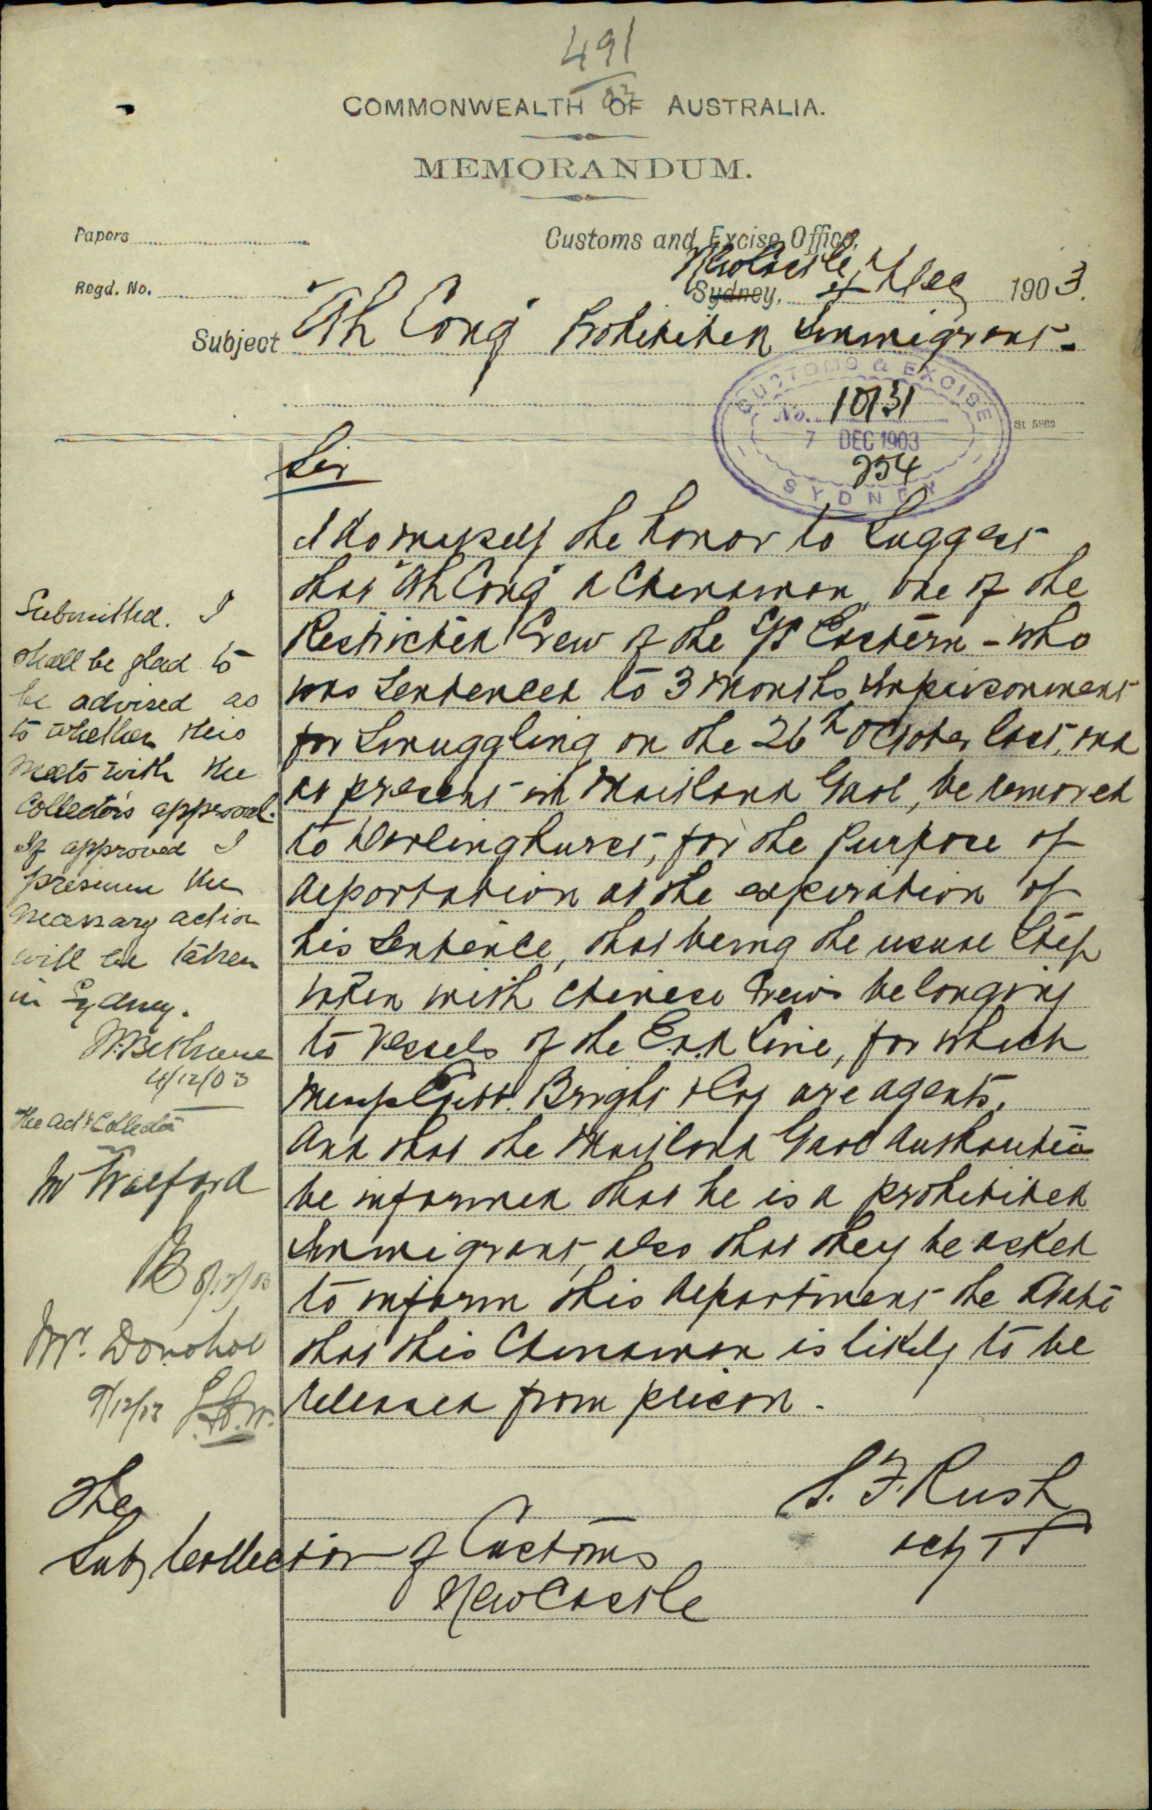 491
03
COMMONWEALTH OF AUSTRALIA.
MEMORANDUM.
Papers
Customs and Excise Office,
Newcastle, 4th Dec
Regd. No.
Sydney, 1903.
Subject "Ah Cong" Prohibited Immigrant.
CUSTOMS & EXCISE
No. 10131
7 DEC 1903
254
SYDNEY
St 5802
Sir
I do myself the honor to suggest
that "Ah Cong" a Chinaman, one of the
Restricted Crew of the S/S Eastern - who
was sentenced to 3 months imprisonment
for smuggling on the 26th October last, and
at present in Maitland Gaol, be removed
to Darlinghurst, for the purpose of
deportation at the expiration of
his sentence, that being the usual step
taken with Chinese Crews belonging
to Vessels of the E. & A Line, for which
Messrs Gibbs. Bright & Coy are agents.
And that the Maitland Gaol Authorities
be informed that he is a prohibited
Immigrant, also that they be asked
to inform this department the date
that this Chinaman is likely to be
released from prison.
S. F. Rush
The
Sub Collector of Customs
Newcastle
Submitted. I
shall be glad to
be advised as
to whether this
meets with the
Collector's approval.
If approved I
presume the
necessary action
will be taken
in Sydney.
The Actg Collector
Mr Walford
8/12/03
Mr. Donohoe
9/12/03